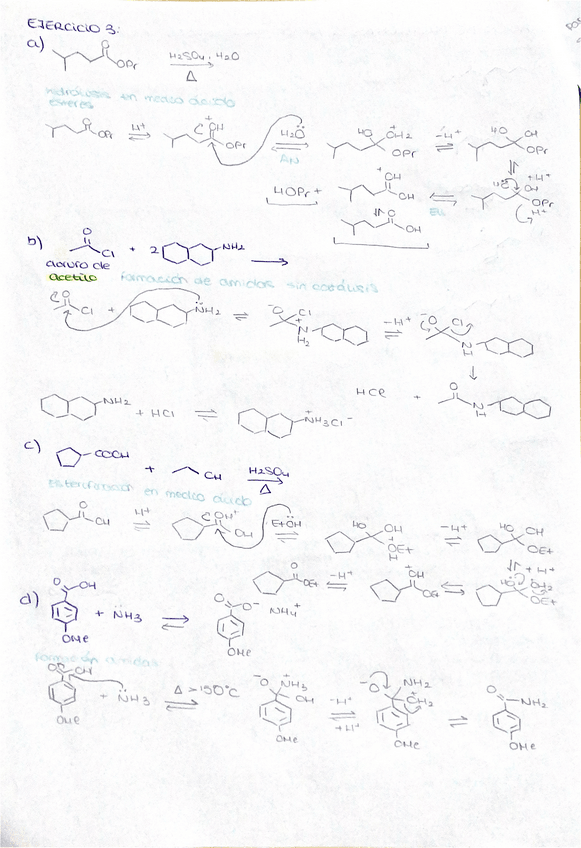 EJERCICIO 3:
a) O OPr H₂SO₄, H₂O Δ
hidrólisis en medio ácido
ésteres
O OPr H⁺ ⁺OH OPr H₂O AN HO ⁺OH₂ OPr -H⁺ HO OH OPr
+H⁺
HOPr + ⁺OH OH EN HO OH OPr H⁺
O OH
b) O Cl + 2 NH₂
cloruro de
acetilo formación de amidas sin catálisis
O Cl + NH₂ ⁻O Cl N⁺ H₂ -H⁺ ⁻O Cl N H
HCl + O N H
NH₂ + HCl NH₃Cl⁻
c) COOH + OH H₂SO₄ Δ
Esterificación en medio ácido
O OH H⁺ OH⁺ OH EtOH HO OH OEt H -H⁺ HO OH OEt
+H⁺
O OEt -H⁺ ⁺OH OEt HO OH₂ OEt
d) O OH + NH₃ O O⁻ NH₄⁺
OMe OMe
formación amidas
O OH + NH₃ Δ >150°C ⁻O NH₃ OH -H⁺ +H⁺ ⁻O NH₂ OH₂ O NH₂
OMe OMe OMe OMe